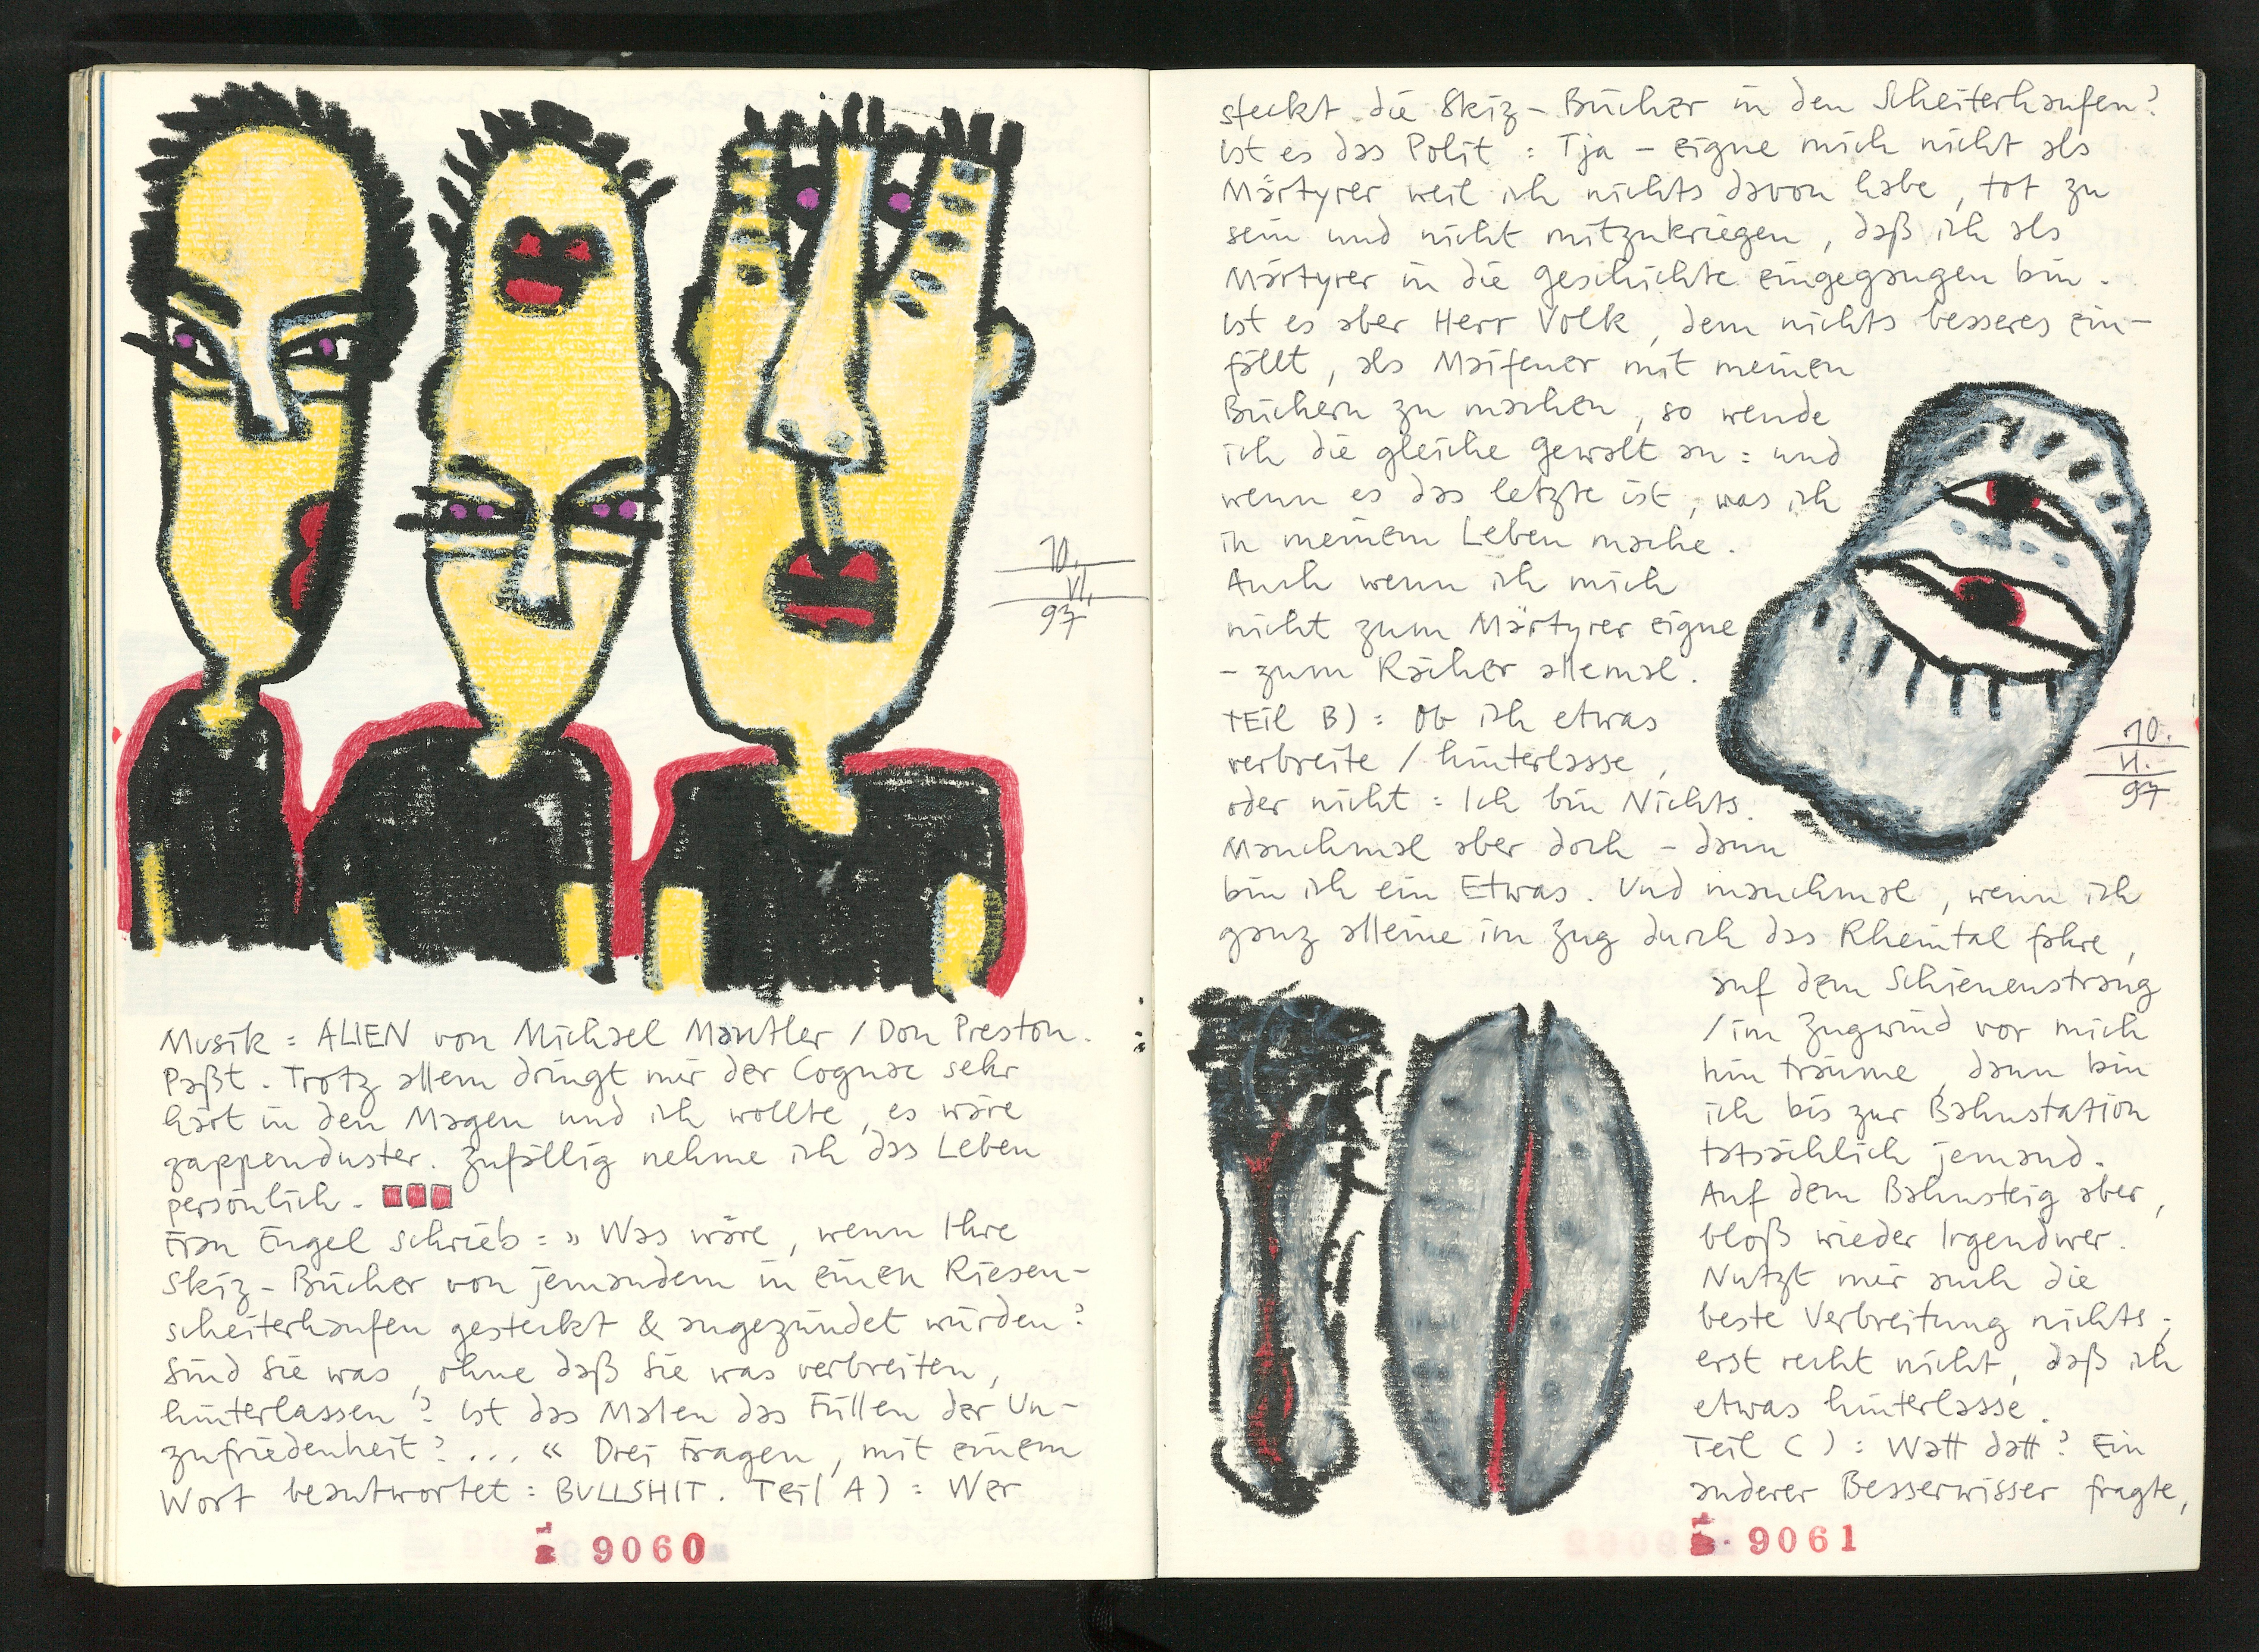 10.
VI.
97
Musik : ALIEN von Michael Mantler / Don Preston.
Paßt. Trotz allem dringt mir der Cognac sehr
hart in den Magen und ich wollte, es wäre
zappenduster. Zufällig nehme ich das Leben
persönlich.
Frau Engel schrieb : » Was wäre, wenn Ihre
Skiz-Bücher von jemandem in einen Riesen-
scheiterhaufen gesteckt & angezündet würden?
Sind Sie was, ohne daß Sie was verbreiten,
hinterlassen? Ist das Malen das Füllen der Un-
zufriedenheit? ... « Drei Fragen, mit einem
Wort beantwortet : BULLSHIT. Teil A) : Wer
9060
steckt die Skiz-Bücher in den Scheiterhaufen?
Ist es das Polit : Tja – eigne mich nicht als
Märtyrer weil ich nichts davon habe, tot zu
sein und nicht mitzukriegen, daß ich als
Märtyrer in die Geschichte eingegangen bin.
Ist es aber Herr Volk, dem nichts besseres ein-
fällt, als Maifeuer mit meinen
Büchern zu machen, so wende
ich die gleiche Gewalt an : und
wenn es das letzte ist, was ich
in meinem Leben mache.
Auch wenn ich mich
nicht zum Märtyrer eigne
– zum Rächer allemal.
TEil B) : Ob ich etwas
verbreite / hinterlasse,
oder nicht : Ich bin Nichts.
Manchmal aber doch – dann
bin ich ein Etwas. Und manchmal, wenn ich
ganz alleine im Zug durch das Rheintal fahre,
auf dem Schienenstrang
/ im Zugwind vor mich
hin träume, dann bin
ich bis zur Bahnstation
tatsächlich jemand.
Auf dem Bahnsteig aber,
bloß wieder Irgendwer.
Nutzt mir auch die
beste Verbreitung nichts ;
erst recht nicht, daß ich
etwas hinterlasse.
Teil C) : Watt datt? Ein
anderer Besserwisser fragte,
10.
VI.
97
9061